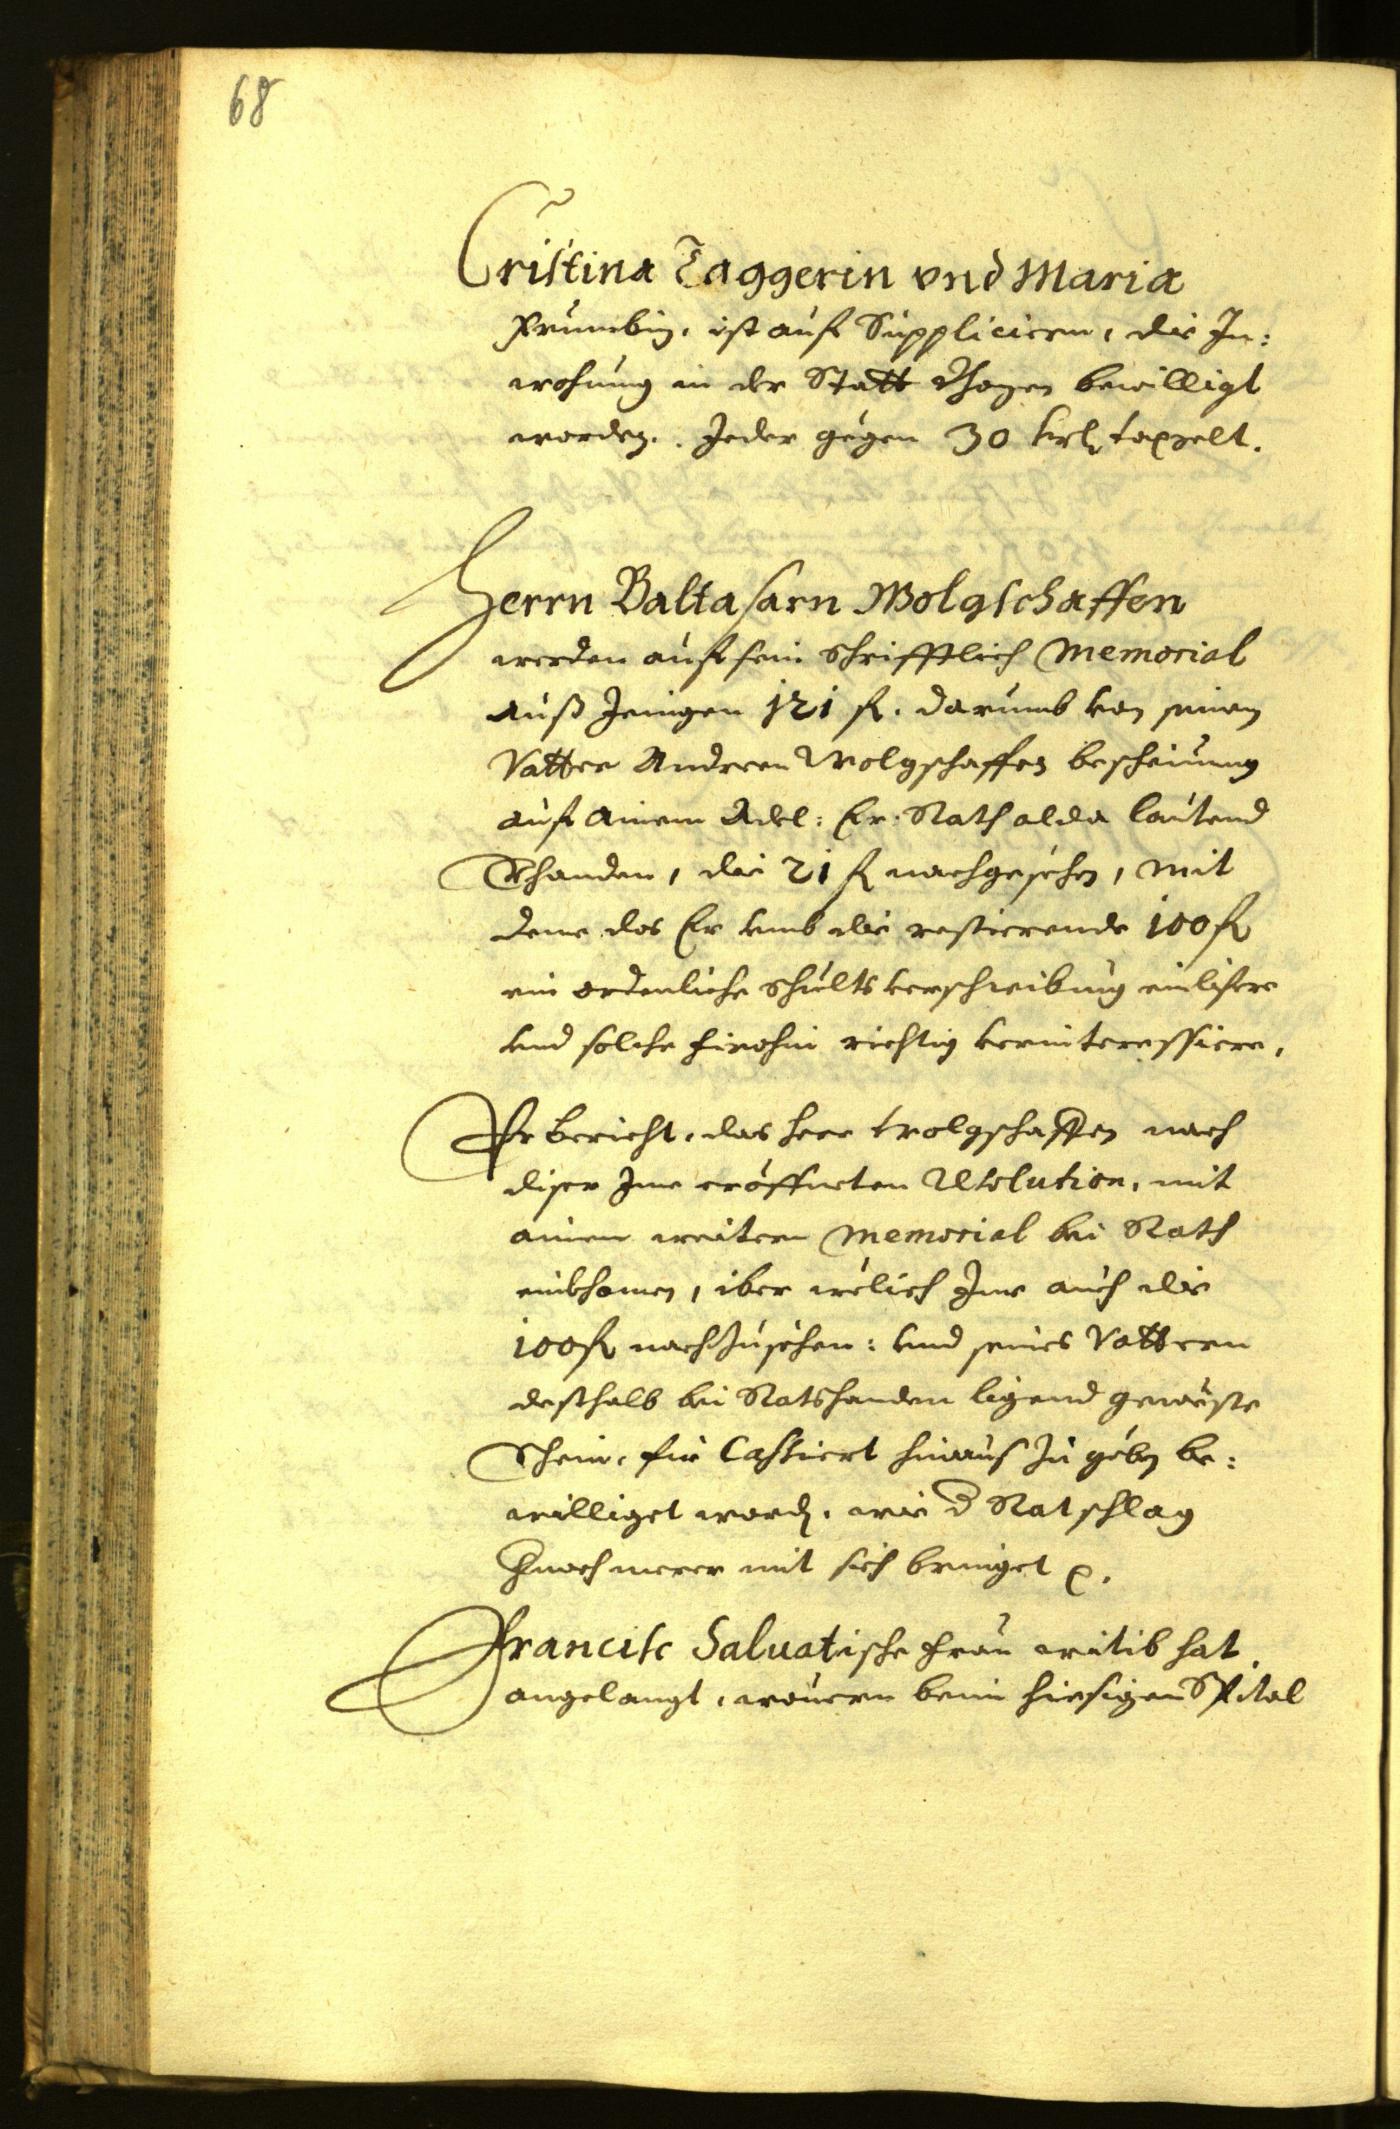 68
Cristina Taggerin vnd Maria
Prumbin, ist auf Supplicieren, die In:
wohnung in der Statt Pozen bewilligt
worden. Jeder gegen 30 krz taxzelt.
Herrn Baltasarn Wolgschaffen
werden auf sein schrifftlich Memorial
auß Jenigen 121 fl. darumb von seinem
Vatter Andreen Wolgschaffen bescheinung
auf ainem Adel: Er: Rath alda lautend
verhanden, die 21 fl nachgesehen, mit
deme das Er vmb die restierende 100 fl
ein ordenliche Schultsverschreibung einlifere
vnd solche hinohin richtig verinteressiere,
Er bericht, das herr Wolgschaffen nach
diser Ime eröffneten Resolution, mit
ainem weitern Memorial bei Rath
einkhomen, iber welich Ime auch die
100 fl nachzusehen: vnd seines Vattern
desthalb bei Ratshanden ligend geweste
Schein, für Cassiert hinauß zu geben be:
williget worden. wie d Ratschlag
hernach merer mit sich bringet etc.
Francisc Saluatische Frau witib hat
angelangt, weillen beim hiesigen Spital